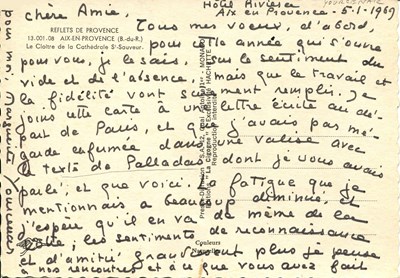 Hôtel Riviera
Aix en Provence - 5.1.1969
chère Amie,
REFLETS DE PROVENCE
13.001.08 AIX-EN-PROVENCE (B.-du-R.)
Le Cloître de la Cathédrale St-Sauveur.
Tous mes voeux, d'abord,
pour cette année qui s'ouvre
pour vous, je le sais, sur le sentiment du
vide et de l'absence, mais que le travail et
la fidélité vont remplir. Je
jouis cette carte à une lettre écrite au dé-
part de Paris, et que j'avais par mé-
garde enfermée dans une valise avec
le texte de Palladas dont je vous avais
parlé, et que voici. La fatigue que je
mentionnais a beaucoup diminué, et
j'espère qu'il en va de même de la
vôtre; les sentiments de reconnaissance
et d'amitié grandissent plus je pense
à nos rencontres et à ce que vous avez fait
pour moi. Marguerite Yourcenar
Couleurs